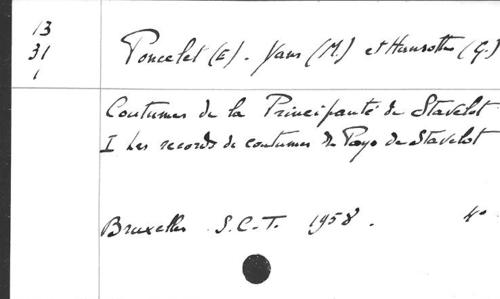 13
31
1
Poncelet (E). Yans (M.) et Hansotte (G.)
Coutumes de la Principauté de Stavelot
I Les records de coutumes du Pays de Stavelot
Bruxelles S.C.T. 1958. 4°